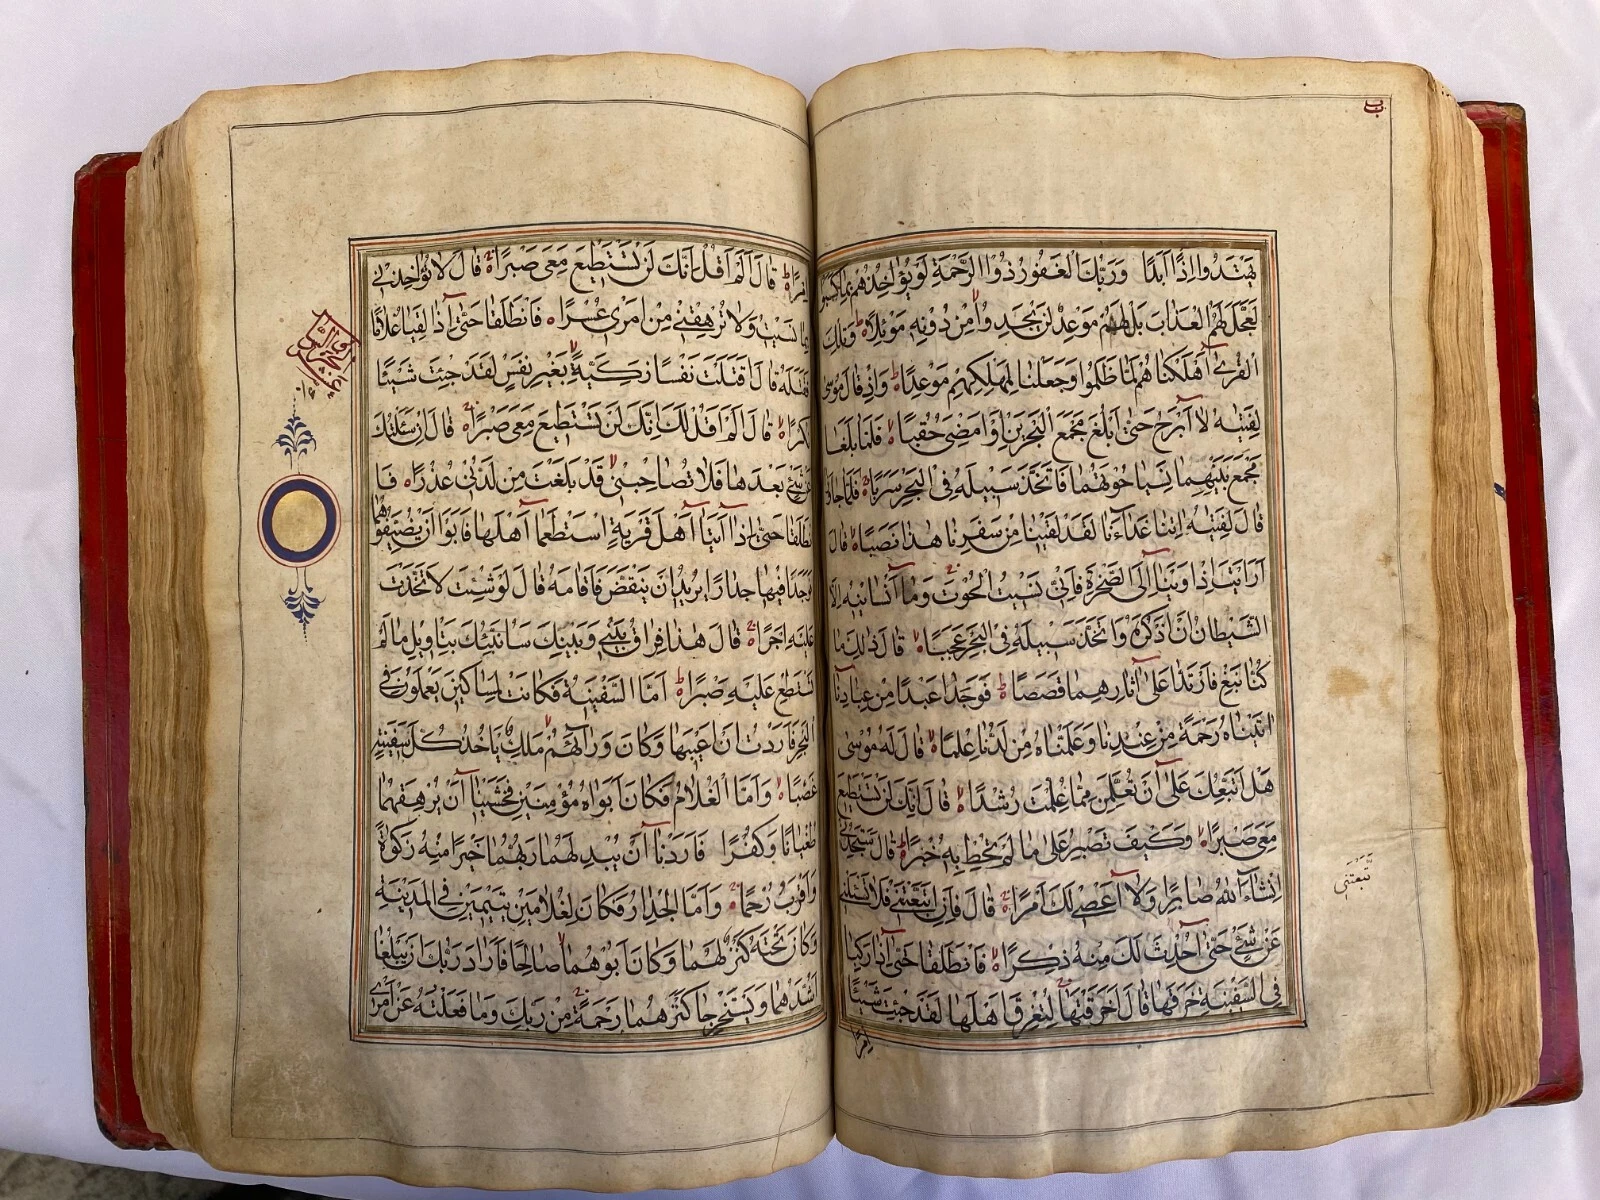 يَهْتَدُوا اِذًا اَبَدًا وَرَبُّكَ الْغَفُورُ ذُو الرَّحْمَةِ لَوْ يُؤَاخِذُهُمْ بِمَا كَسَبُوا
لَعَجَّلَ لَهُمُ الْعَذَابَ بَلْ لَهُمْ مَوْعِدٌ لَنْ يَجِدُوا مِنْ دُونِهِ مَوْئِلًا وَتِلْكَ
الْقُرٰى اَهْلَكْنَاهُمْ لَمَّا ظَلَمُوا وَجَعَلْنَا لِمَهْلِكِهِمْ مَوْعِدًا وَاِذْ قَالَ مُوسٰى
لِفَتٰيهُ لَا اَبْرَحُ حَتّٰى اَبْلُغَ مَجْمَعَ الْبَحْرَيْنِ اَوْ اَمْضِيَ حُقُبًا فَلَمَّا بَلَغَا
مَجْمَعَ بَيْنِهِمَا نَسِيَا حُوتَهُمَا فَاتَّخَذَ سَبِيلَهُ فِي الْبَحْرِ سَرَبًا فَلَمَّا جَاوَزَا
قَالَ لِفَتٰيهُ اٰتِنَا غَدَاءَنَا لَقَدْ لَقِينَا مِنْ سَفَرِنَا هٰذَا نَصَبًا قَالَ
اَرَاَيْتَ اِذْ اَوَيْنَا اِلَى الصَّخْرَةِ فَاِنِّي نَسِيتُ الْحُوتَ وَمَا اَنْسَانِيهُ اِلَّا
الشَّيْطَانُ اَنْ اَذْكُرَهُ وَاتَّخَذَ سَبِيلَهُ فِي الْبَحْرِ عَجَبًا قَالَ ذٰلِكَ مَا
كُنَّا نَبْغِ فَارْتَدَّا عَلٰى اٰثَارِهِمَا قَصَصًا فَوَجَدَا عَبْدًا مِنْ عِبَادِنَا
اٰتَيْنَاهُ رَحْمَةً مِنْ عِنْدِنَا وَعَلَّمْنَاهُ مِنْ لَدُنَّا عِلْمًا قَالَ لَهُ مُوسٰى
هَلْ اَتَّبِعُكَ عَلٰى اَنْ تُعَلِّمَنِ مِمَّا عُلِّمْتَ رُشْدًا قَالَ اِنَّكَ لَنْ تَسْتَطِيعَ
مَعِيَ صَبْرًا وَكَيْفَ تَصْبِرُ عَلٰى مَا لَمْ تُحِطْ بِهِ خُبْرًا قَالَ سَتَجِدُنِي
اِنْ شَاءَ اللّٰهُ صَابِرًا وَلَا اَعْصِي لَكَ اَمْرًا قَالَ فَاِنِ اتَّبَعْتَنِي فَلَا تَسْئَلْنِي
عَنْ شَيْءٍ حَتّٰى اُحْدِثَ لَكَ مِنْهُ ذِكْرًا فَانْطَلَقَا حَتّٰى اِذَا رَكِبَا
فِي السَّفِينَةِ خَرَقَهَا قَالَ اَخَرَقْتَهَا لِتُغْرِقَ اَهْلَهَا لَقَدْ جِئْتَ شَيْئًا
اِمْرًا
تَّبَعْتَنِي
اِمْرًا قَالَ اَلَمْ اَقُلْ اِنَّكَ لَنْ تَسْتَطِيعَ مَعِيَ صَبْرًا قَالَ لَا تُؤَاخِذْنِي
بِمَا نَسِيتُ وَلَا تُرْهِقْنِي مِنْ اَمْرِي عُسْرًا فَانْطَلَقَا حَتّٰى اِذَا لَقِيَا غُلَامًا
فَقَتَلَهُ قَالَ اَقَتَلْتَ نَفْسًا زَكِيَّةً بِغَيْرِ نَفْسٍ لَقَدْ جِئْتَ شَيْئًا
نُكْرًا قَالَ اَلَمْ اَقُلْ لَكَ اِنَّكَ لَنْ تَسْتَطِيعَ مَعِيَ صَبْرًا قَالَ اِنْ سَئَلْتُكَ
عَنْ شَيْءٍ بَعْدَهَا فَلَا تُصَاحِبْنِي قَدْ بَلَغْتَ مِنْ لَدُنِّي عُذْرًا فَا
نْطَلَقَا حَتّٰى اِذَا اَتَيَا اَهْلَ قَرْيَةٍ اسْتَطْعَمَا اَهْلَهَا فَاَبَوْا اَنْ يُضَيِّفُوهُمَا
فَوَجَدَا فِيهَا جِدَارًا يُرِيدُ اَنْ يَنْقَضَّ فَاَقَامَهُ قَالَ لَوْ شِئْتَ لَاتَّخَذْتَ
عَلَيْهِ اَجْرًا قَالَ هٰذَا فِرَاقُ بَيْنِي وَبَيْنِكَ سَاُنَبِّئُكَ بِتَاْوِيلِ مَا لَمْ
تَسْتَطِعْ عَلَيْهِ صَبْرًا اَمَّا السَّفِينَةُ فَكَانَتْ لِمَسَاكِينَ يَعْمَلُونَ فِي
الْبَحْرِ فَاَرَدْتُ اَنْ اَعِيبَهَا وَكَانَ وَرَاءَهُمْ مَلِكٌ يَاْخُذُ كُلَّ سَفِينَةٍ
غَصْبًا وَاَمَّا الْغُلَامُ فَكَانَ اَبَوَاهُ مُؤْمِنَيْنِ فَخَشِينَا اَنْ يُرْهِقَهُمَا
طُغْيَانًا وَكُفْرًا فَاَرَدْنَا اَنْ يُبْدِلَهُمَا رَبُّهُمَا خَيْرًا مِنْهُ زَكٰوةً
وَاَقْرَبَ رُحْمًا وَاَمَّا الْجِدَارُ فَكَانَ لِغُلَامَيْنِ يَتِيمَيْنِ فِي الْمَدِينَةِ
وَكَانَ تَحْتَهُ كَنْزٌ لَهُمَا وَكَانَ اَبُوهُمَا صَالِحًا فَاَرَادَ رَبُّكَ اَنْ يَبْلُغَا
اَشُدَّهُمَا وَيَسْتَخْرِجَا كَنْزَهُمَا رَحْمَةً مِنْ رَبِّكَ وَمَا فَعَلْتُهُ عَنْ اَمْرِي